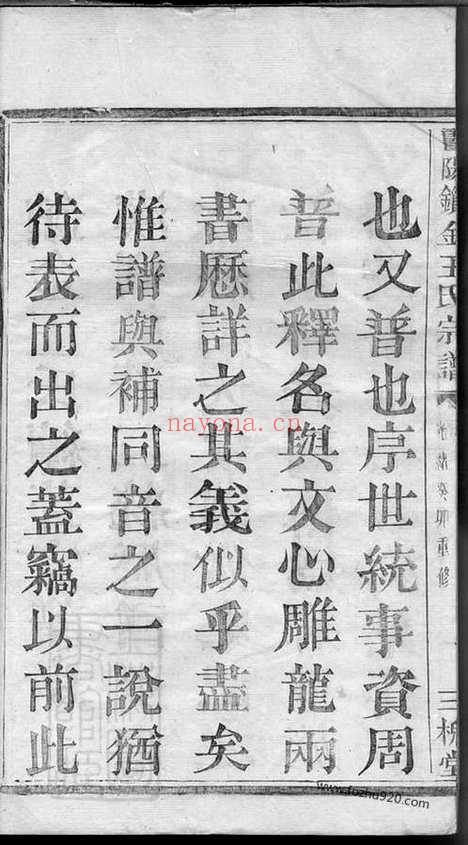 金王氏宗譜
光緒癸卯重修
三槐堂
也又普也序世統事資周
普此釋名與文心雕龍兩
書歷詳之其義似乎盡矣
惟譜與補同音之一說猶
待表而出之蓋竊以前此
nayona.cn
www.fozhu920.com